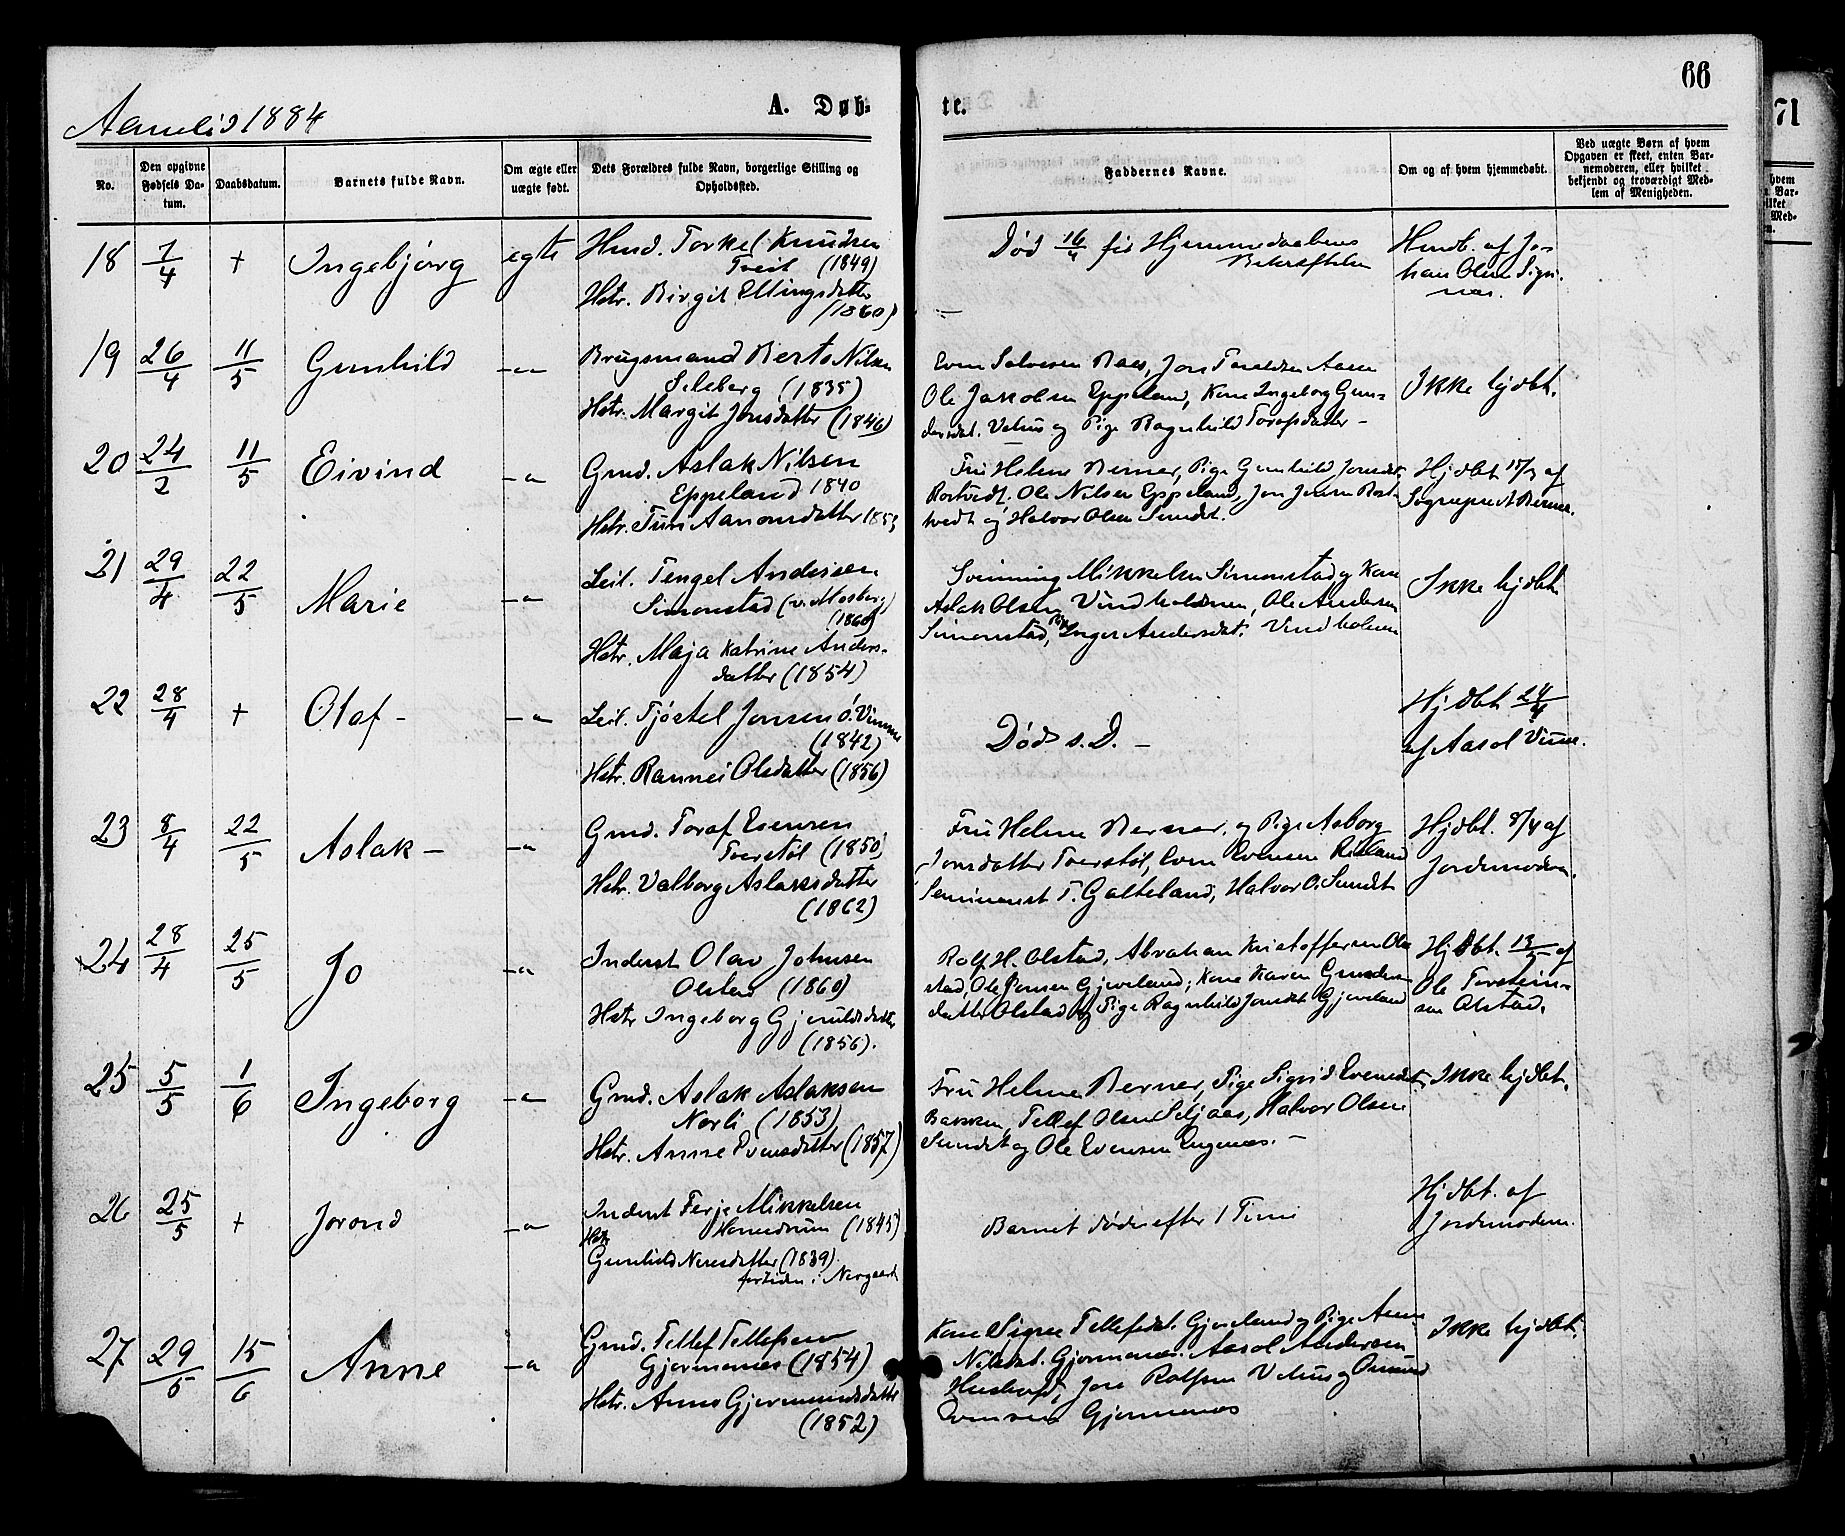 66
71
Aamlid 1884
A. Døb-
te.
No.
Den opgivne Fødsels Datum.
Daabsdatum.
Barnets fulde Navn.
Om ægte eller uægte født.
Dets Forældres fulde Navn, borgerlige Stilling og Opholdsted.
Faddernes Navne.
Om og af hvem hjemmedøbt.
Ved uægte Børn af hvem Opgaven er skeet, enten Barnemoderen, eller hvilket bekjendt og troværdigt Medlem af Menigheden.
18 7/4 + Ingebjørg egte
Torkel Knudsen
Tveit (1849)
Hstr. Birgit Ellingsdatter
(1860)
Død 16/4 før Hjemmedaabens
Bekræftelse
af Jo-
han Olsen Sigri-
næs.
19 26/4 11/5 Gunhild -"-
Brugsmand Berto Nilsen
Seleberg (1835)
Hstr. Margit Jonsdatter (1846)
Even Salvesen Jon Taraldsen
Ole Jakobsen Eppeland, Kone Ingeborg Gun-
dersdat. Vehus og Pige Ragnhild
Ikke hjdbt.
20 24/2 11/5 Eivind -"-
Gmd. Aslak Nilsen
Eppeland 1840
Hstr. Turi Aanonsdatter 1853
Fru Helene Berner, Pige Gunhild Jonsdat.
Rostvedt. Ole Nilsen Eppeland, Jon Jensen Rost-
vedt og Halvor Olsen Smedst.
Hjdbt af
Sogneprest Berner.
21 29/4 22/5 Marie -"-
Leil. Tengel Andersen
Simonstad
(1860)
Hstr. Maja Katrine Anders-
datter (1854)
Svenning Mikkelsen Simonstad og Kone
Aslak Olsen Vindholmen, Ole Andersen
Simonstad, Pige Inger Andersdat. Vindholmen
Ikke hjdbt
22 28/4 + Olaf - -"-
Leil. Tjøstel Jonsen ø. Vimme
(1842)
Hstr. Rannei Olsdatter (1856)
Død s. D. -
Hjdbt
af Aasol Vimme.
23 8/4 22/5 Aslak - -"-
Gmd. Toraf Evensen
Tverstøl (1850)
Hstr. Valborg Aslaksdatter
(1862)
Fru Helene Berner, og Pige Aasborg
Jonsdatter Tverstøl, Even Evensen Risland
Seminarist T. Galteland, Halvor O. Smedst
Hjdbt. 8/4 af
Jordemoderen.
24 28/4 25/5 Jo -"-
Inderst Olav Johnsen
Olstad (1860)
Hstr Ingeborg Gjeruldsdatter
(1856).
Rolf H. Olstad, Abraham Kristoffersen Ol-
stad, Ole Jensen Gjeveland; Kone Karen Gunders-
datter Olstad og Pige Ragnhild Jonsdat Gjeveland
Hjdbt. af
Ole Torstein-
sen Olstad.
25 5/5 1/6 Ingeborg -"-
Gmd. Aslak Aslaksen
Nærli (1853)
Hstr. Anne Evensdatter (1857)
Fru Helene Berner, Pige Sigrid Evensdat.
Bakken, Tellef Olsen Seljaas, Halvor Olsen
Smedst og Ole Evensen Engenæs. -
Ikke hjdbt.
26 25/5 + Jorond -"-
Inderst Terje Mikkelsen
(1845)
Hstr
Gunhild (1839)
fortiden i Nærgaard
Barnet døde efter 1 Time
Hjdbt. af
Jordemoderen.
27 29/5 15/6 Anne -"-
Gmd. Tellef Tellefsen
Gjermenæs (1854)
Hstr. Anne Gjermundsdatter
(1852)
Kone Signe Tellefsdat. Gjeveland og Pige Anne
Nilsdat. Gjermenæs. Aasol Andersen
Jon Rolfsen Vehus og
Evensen Gjermenæs
Ikke hjdbt.